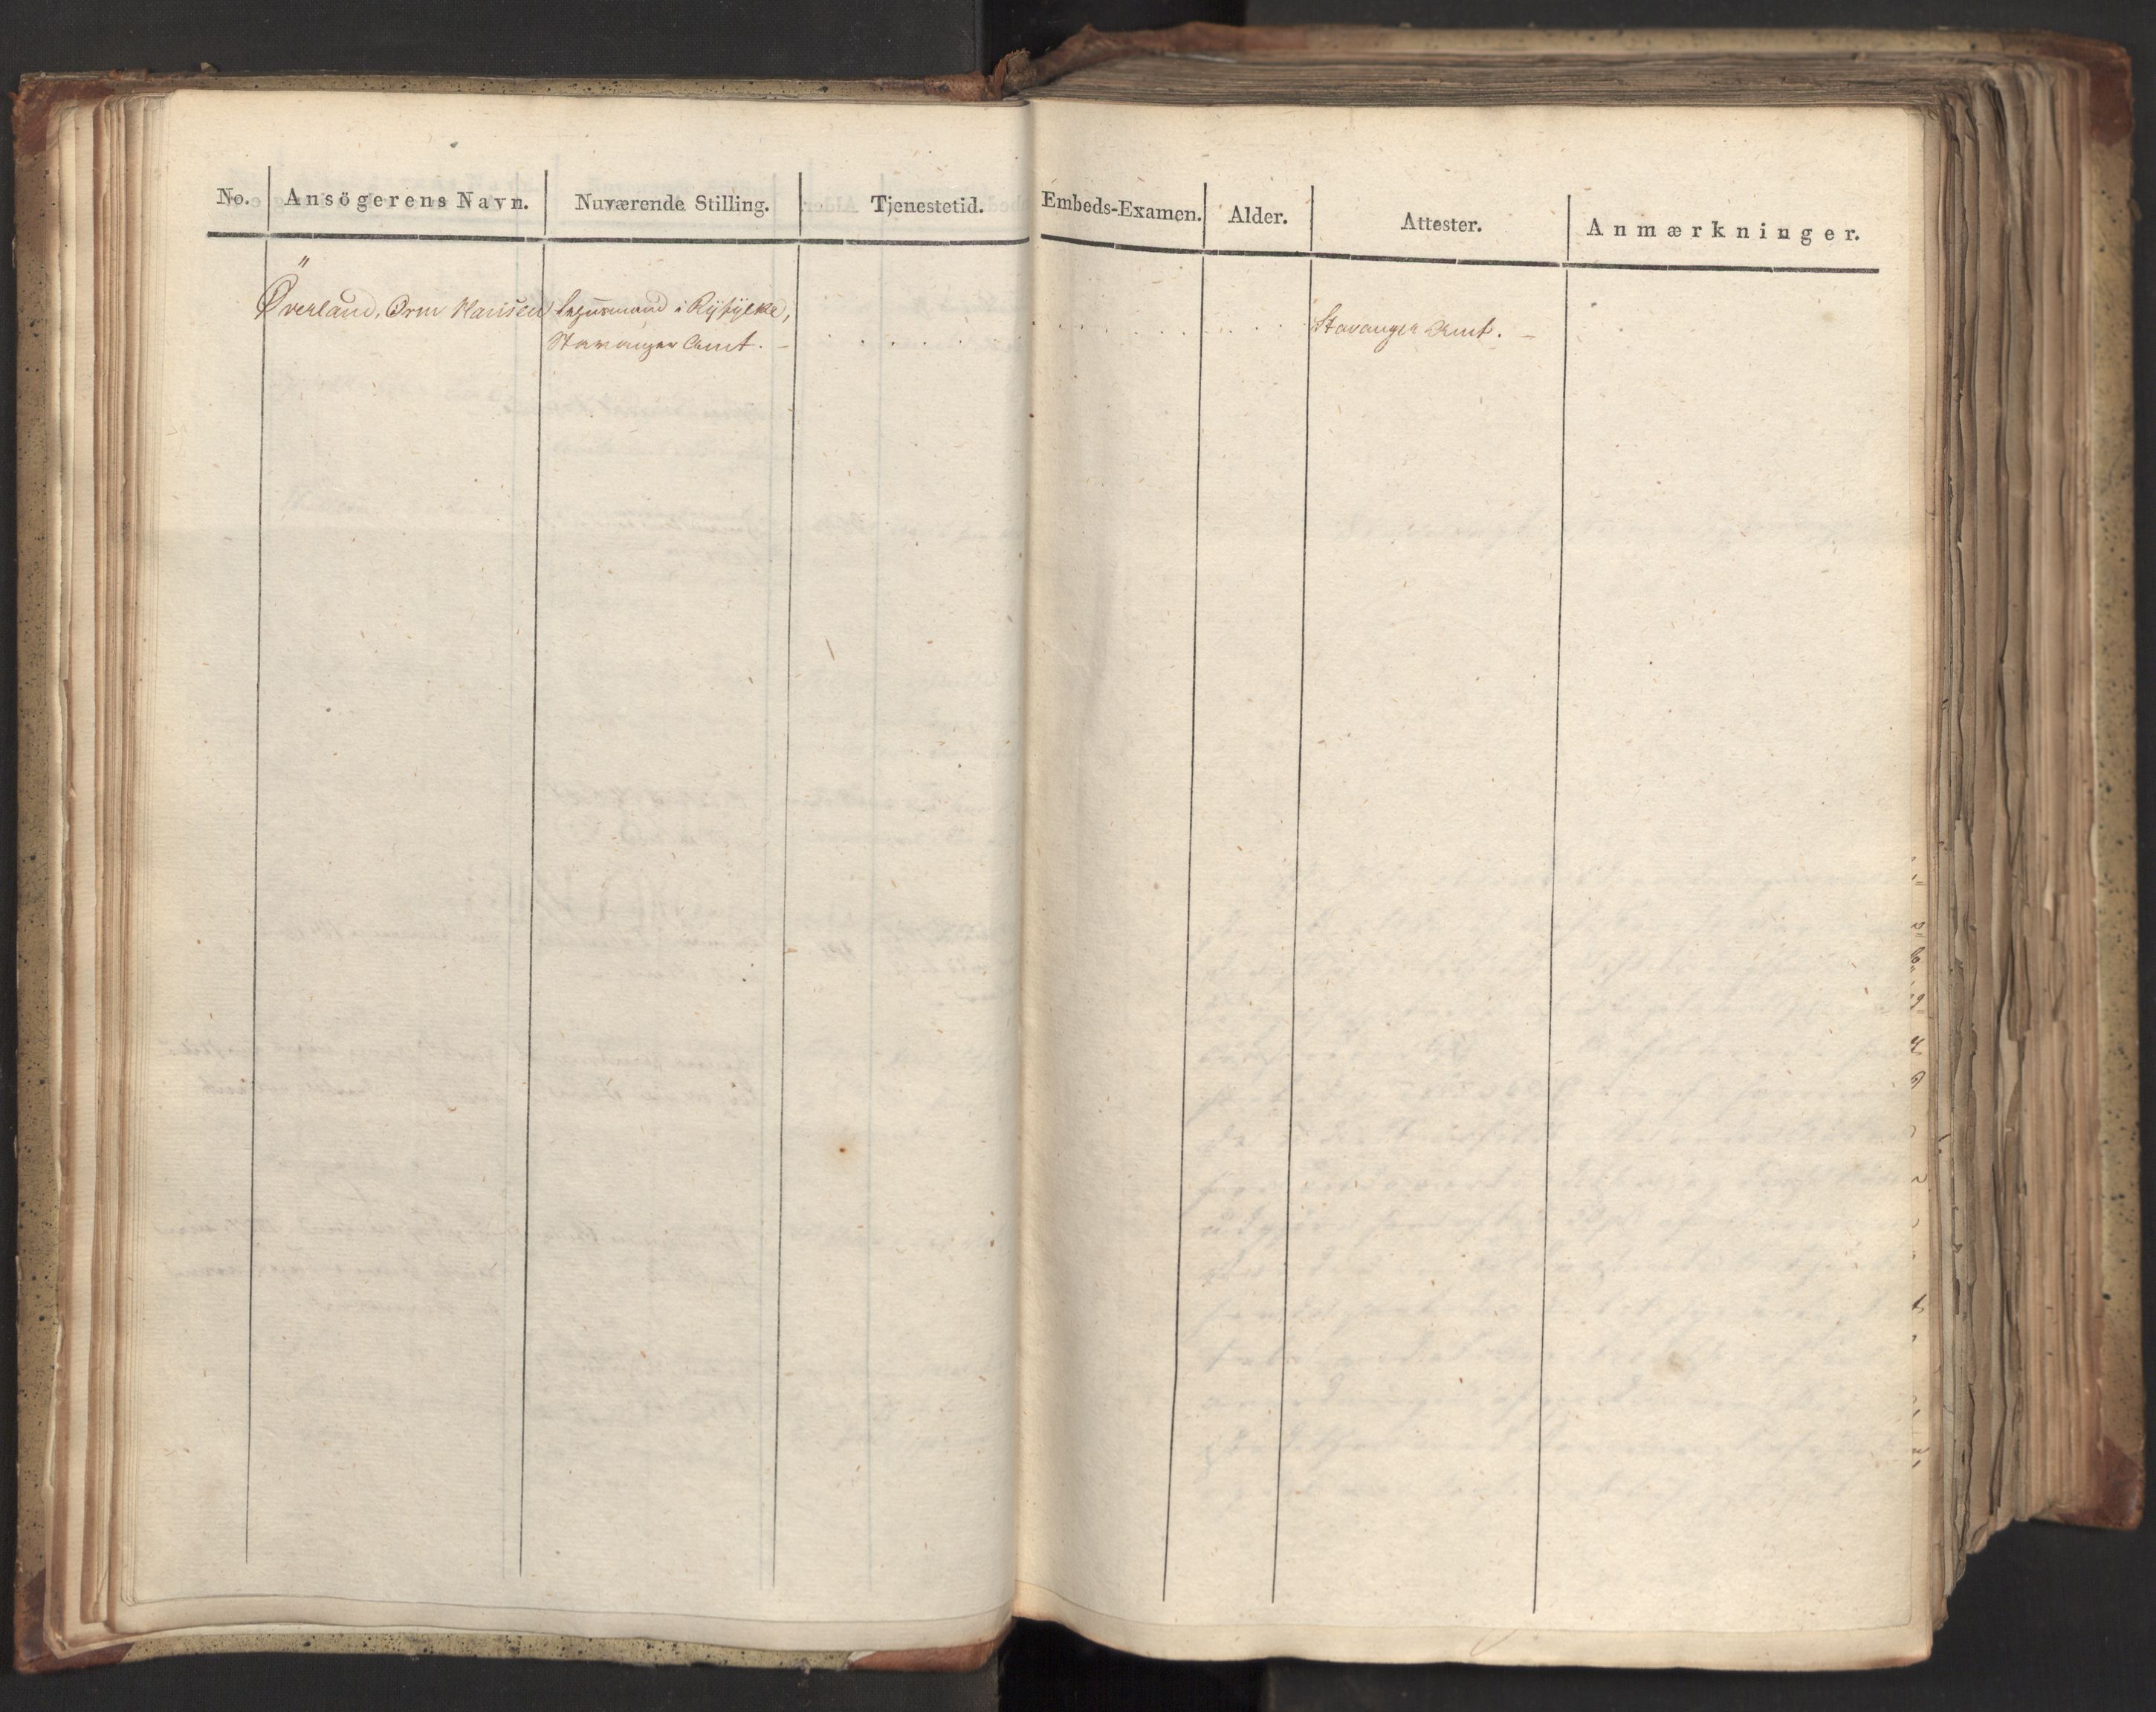 No. Ansögerens Navn. Nuværende Stilling. Tjenestetid. Embeds-Examen. Alder. Attester. Anmærkninger.
Øverland, Orm Hansen Lensmand i Ryfylke, Stavanger Amt. –
Stavanger Amt. –